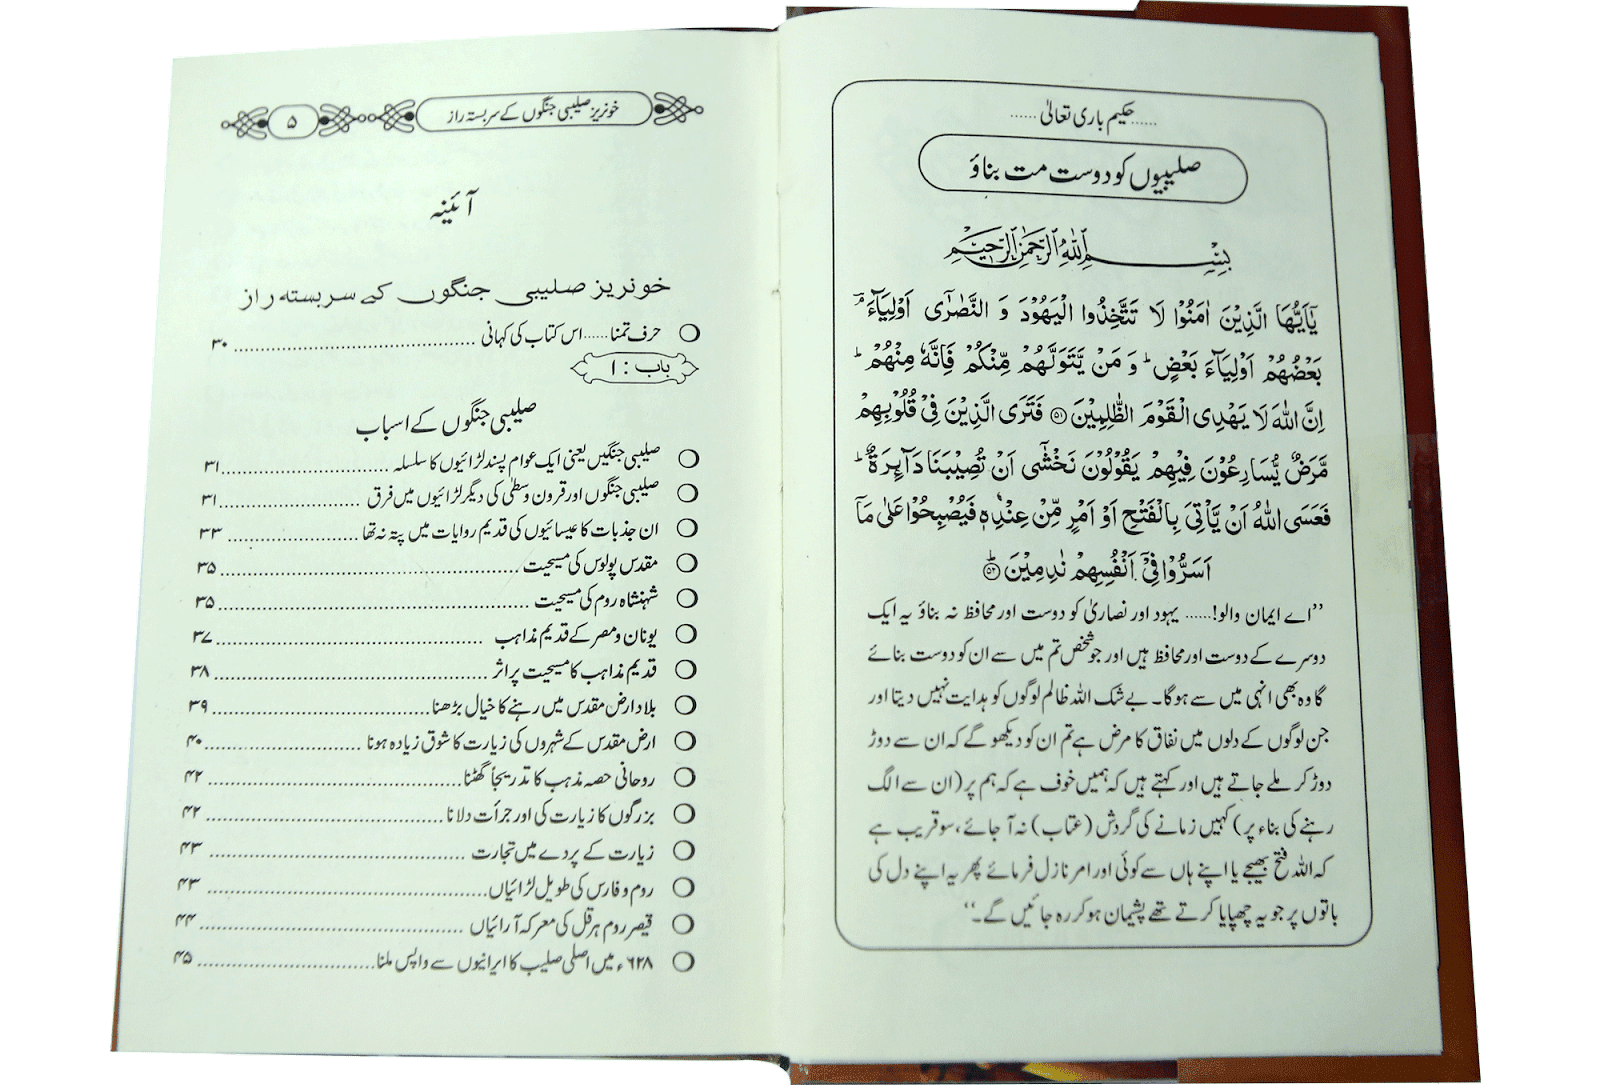 ......حکیم باری تعالیٰ......
صلیبیوں کو دوست مت بناؤ
بِسْمِ اللّٰهِ الرَّحْمٰنِ الرَّحِيْمِ
يٰٓاَيُّهَا الَّذِيْنَ اٰمَنُوْا لَا تَتَّخِذُوا الْيَهُوْدَ وَ النَّصٰرٰٓى اَوْلِيَآءَ ۘؔ
بَعْضُهُمْ اَوْلِيَآءُ بَعْضٍ ؕ وَ مَنْ يَّتَوَلَّهُمْ مِّنْكُمْ فَاِنَّهٗ مِنْهُمْ ؕ
اِنَّ اللّٰهَ لَا يَهْدِى الْقَوْمَ الظّٰلِمِيْنَ ﴿۵۱﴾ فَتَرَى الَّذِيْنَ فِىْ قُلُوْبِهِمْ
مَّرَضٌ يُّسَارِعُوْنَ فِيْهِمْ يَقُوْلُوْنَ نَخْشٰٓى اَنْ تُصِيْبَنَا دَآئِرَةٌ ؕ
فَعَسَى اللّٰهُ اَنْ يَّاْتِىَ بِالْفَتْحِ اَوْ اَمْرٍ مِّنْ عِنْدِهٖ فَيُصْبِحُوْا عَلٰى مَآ
اَسَرُّوْا فِىْٓ اَنْفُسِهِمْ نٰدِمِيْنَ ؕ ﴿۵۲﴾
’’اے ایمان والو!...... یہود اور نصاریٰ کو دوست اور محافظ نہ بناؤ یہ ایک
دوسرے کے دوست اور محافظ ہیں اور جو شخص تم میں سے ان کو دوست بنائے
گا وہ بھی انہی میں سے ہوگا۔ بے شک اللہ ظالم لوگوں کو ہدایت نہیں دیتا اور
جن لوگوں کے دلوں میں نفاق کا مرض ہے تم ان کو دیکھو گے کہ ان سے دوڑ
دوڑ کر ملے جاتے ہیں اور کہتے ہیں کہ ہمیں خوف ہے کہ ہم پر (ان سے الگ
رہنے کی بناء پر) کہیں زمانے کی گردش (عتاب) نہ آ جائے، سو قریب ہے
کہ اللہ فتح بھیجے یا اپنے ہاں سے کوئی اور امر نازل فرمائے پھر یہ اپنے دل کی
باتوں پر جو یہ چھپایا کرتے تھے پشیمان ہو کر رہ جائیں گے۔‘‘
خونریز صلیبی جنگوں کے سربستہ راز ۵
آئینہ
خونریز صلیبی جنگوں کے سربستہ راز
حرف تمنا......اس کتاب کی کہانی ۳۰
باب : ۱
صلیبی جنگوں کے اسباب
صلیبی جنگیں یعنی ایک عوام پسند لڑائیوں کا سلسلہ ۳۱
صلیبی جنگوں اور قرون وسطیٰ کی دیگر لڑائیوں میں فرق ۳۱
ان جذبات کا عیسائیوں کی قدیم روایات میں پتہ نہ تھا ۳۳
مقدس پولوس کی مسیحیت ۳۵
شہنشاہ روم کی مسیحیت ۳۵
یونان و مصر کے قدیم مذاہب ۳۷
قدیم مذاہب کا مسیحیت پر اثر ۳۸
بلاد ارض مقدس میں رہنے کا خیال بڑھنا ۳۹
ارض مقدس کے شہروں کی زیارت کا شوق زیادہ ہونا ۴۰
روحانی حصہ مذہب کا تدریجاً گھٹنا ۴۲
بزرگوں کا زیارت کی اور جرأت دلانا ۴۲
زیارت کے پردے میں تجارت ۴۳
روم و فارس کی طویل لڑائیاں ۴۳
قیصر روم ہرقل کی معرکہ آرائیاں ۴۴
۶۲۸ء میں اصلی صلیب کا ایرانیوں سے واپس ملنا ۴۵